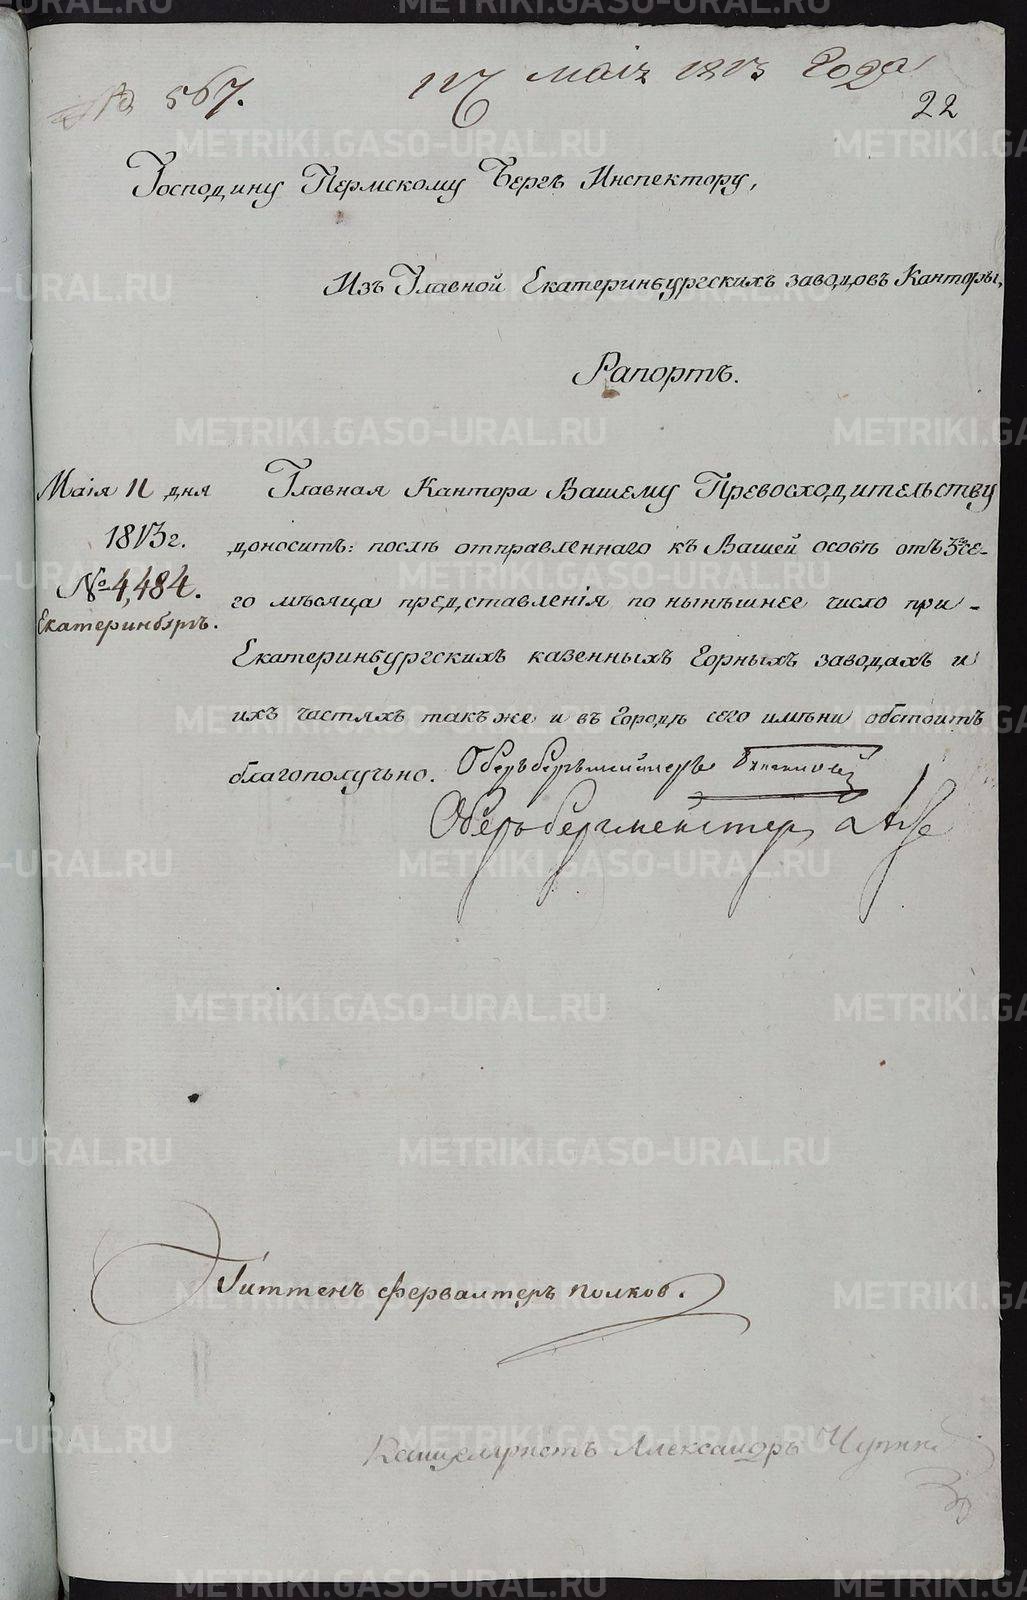 № 567.
маія 1813 Года
22
Господину Пермскому Бергъ Инспектору,
Изъ Главной Екатеринбургскихъ заводовъ Канторы,
Рапортъ.
Маія 11 дня
1813 г.
№ 4,484.
Екатеринбургъ.
Главная Кантора Вашему Превосходительству
доноситъ: послѣ отправленнаго къ Вашей особѣ отъ 3го се-
го мѣсяца представленія по нынѣшнее число при-
Екатеринбургскихъ казенныхъ Горныхъ заводахъ и
ихъ частяхъ такъ же и въ городѣ сего имѣни обстоитъ
благополучьно. Оберъбергмейстеръ
Оберъбергмейстер
Гиттенъ фервалтеръ полков.
Канцеляристъ Александръ Чупин
METRIKI.GASO-URAL.RU